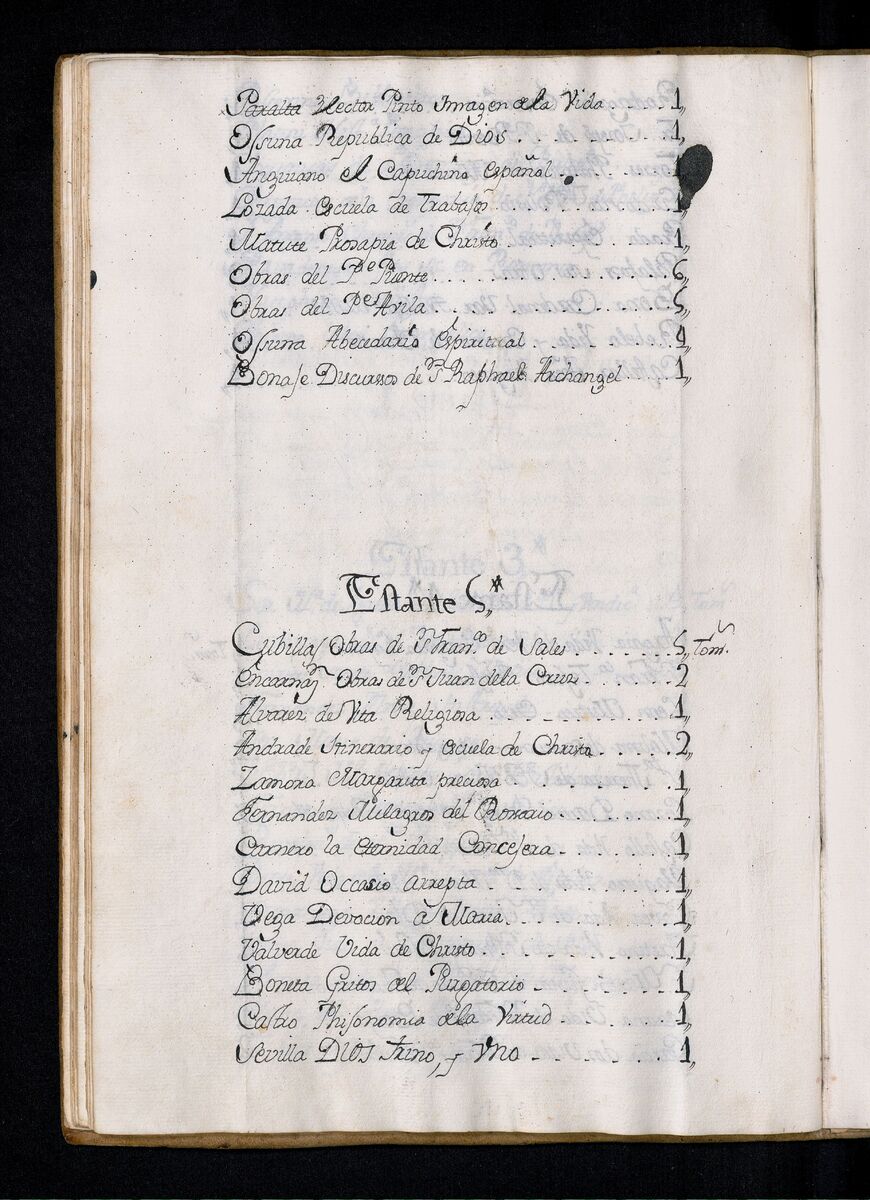 Paralta Hector Pinto Imagen de la Vida. . . 1,,
Ossuna Republica de Dios. . . . . . . . 1,,
Anguiano el Capuchino Español. . . . . 1,,
Lozada escuela de Trabajos . . . . . . . 1,,
Matute Prosapia de Christo . . . . . . . 1,,
Obras del Pe Puente. . . . . . . . . . . 6,,
Obras del Pe Avila. . . . . . . . . . . . 5,,
Ossuna Abecedario Espiritual . . . . . . 4,,
Bonase Discursos de Sn Raphael Archangel. . . 1,,
Estante 5,,
Cubillas Obras de Sn Frano de Sales . . . . . . 5,, Toms
Encarnan Obras de Sn Juan de la Cruz . . . . . . 2
Alvarez de Vita Religiosa . . . . . . . . . 1,,
Andrade Itinerario y escuela de Christo . . . . . 2,,
Zamora Margarita preciosa . . . . . . . . . 1,,
Fernandez Milagros del Rosario . . . . . . . 1,,
Carnero la eternidad Consejera . . . . . . . 1,,
David Occasio arrepta . . . . . . . . . . 1,,
Vega Devocion à Maria . . . . . . . . . . 1,,
Valverde Vida de Christo . . . . . . . . . . 1,,
Boneta Gritos del Purgatorio . . . . . . . . 1,,
Castro Phisonomia de la Virtud . . . . . . . 1,,
Sevilla DIOS trino, y Vno . . . . . . . . . 1,,